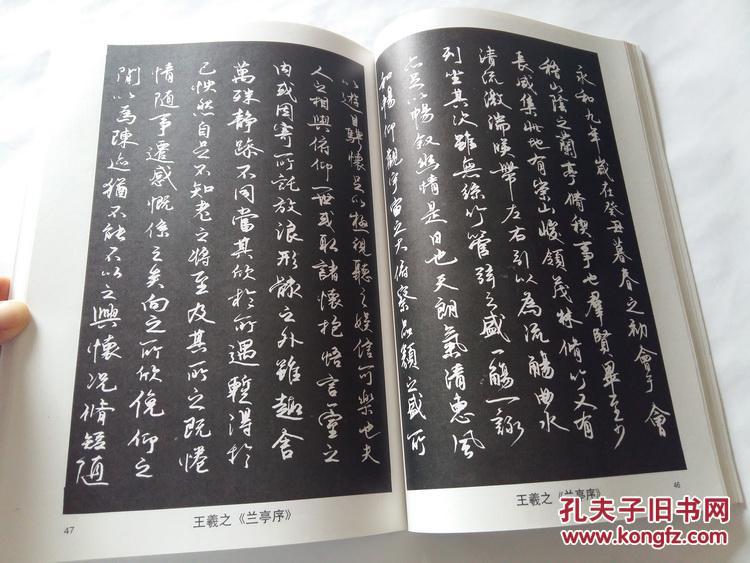 永和九年歲在癸丑暮春之初會于會
稽山陰之蘭亭脩稧事也羣賢畢至少
長咸集此地有崇山峻領茂林脩竹又有
清流激湍暎帶左右引以為流觴曲水
列坐其次雖無絲竹管弦之盛一觴一詠
亦足以暢敘幽情是日也天朗氣清惠風
和暢仰觀宇宙之大俯察品類之盛所
王羲之《兰亭序》
46
以遊目騁懷足以極視聽之娛信可樂也夫
人之相與俯仰一世或取諸懷抱悟言一室之
內或因寄所託放浪形骸之外雖趣舍
萬殊靜躁不同當其欣於所遇暫得於
己怏然自足不知老之將至及其所之既惓
情隨事遷感慨係之矣向之所欣俛仰之
閒以為陳迹猶不能不以之興懷況脩短隨
王羲之《兰亭序》
47
孔夫子旧书网
www.kongfz.com